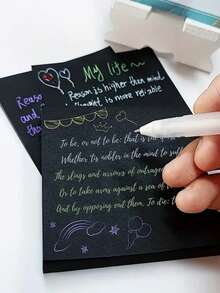 My life~
Reason is higher than mind
is more reliable
Reaso
and
the
To be, or not to be: that is
Whether 'tis nobler in the mind to suff
The slings and arrows of outrageou
Or to take arms against a sea of
And by opposing end them. To die: t